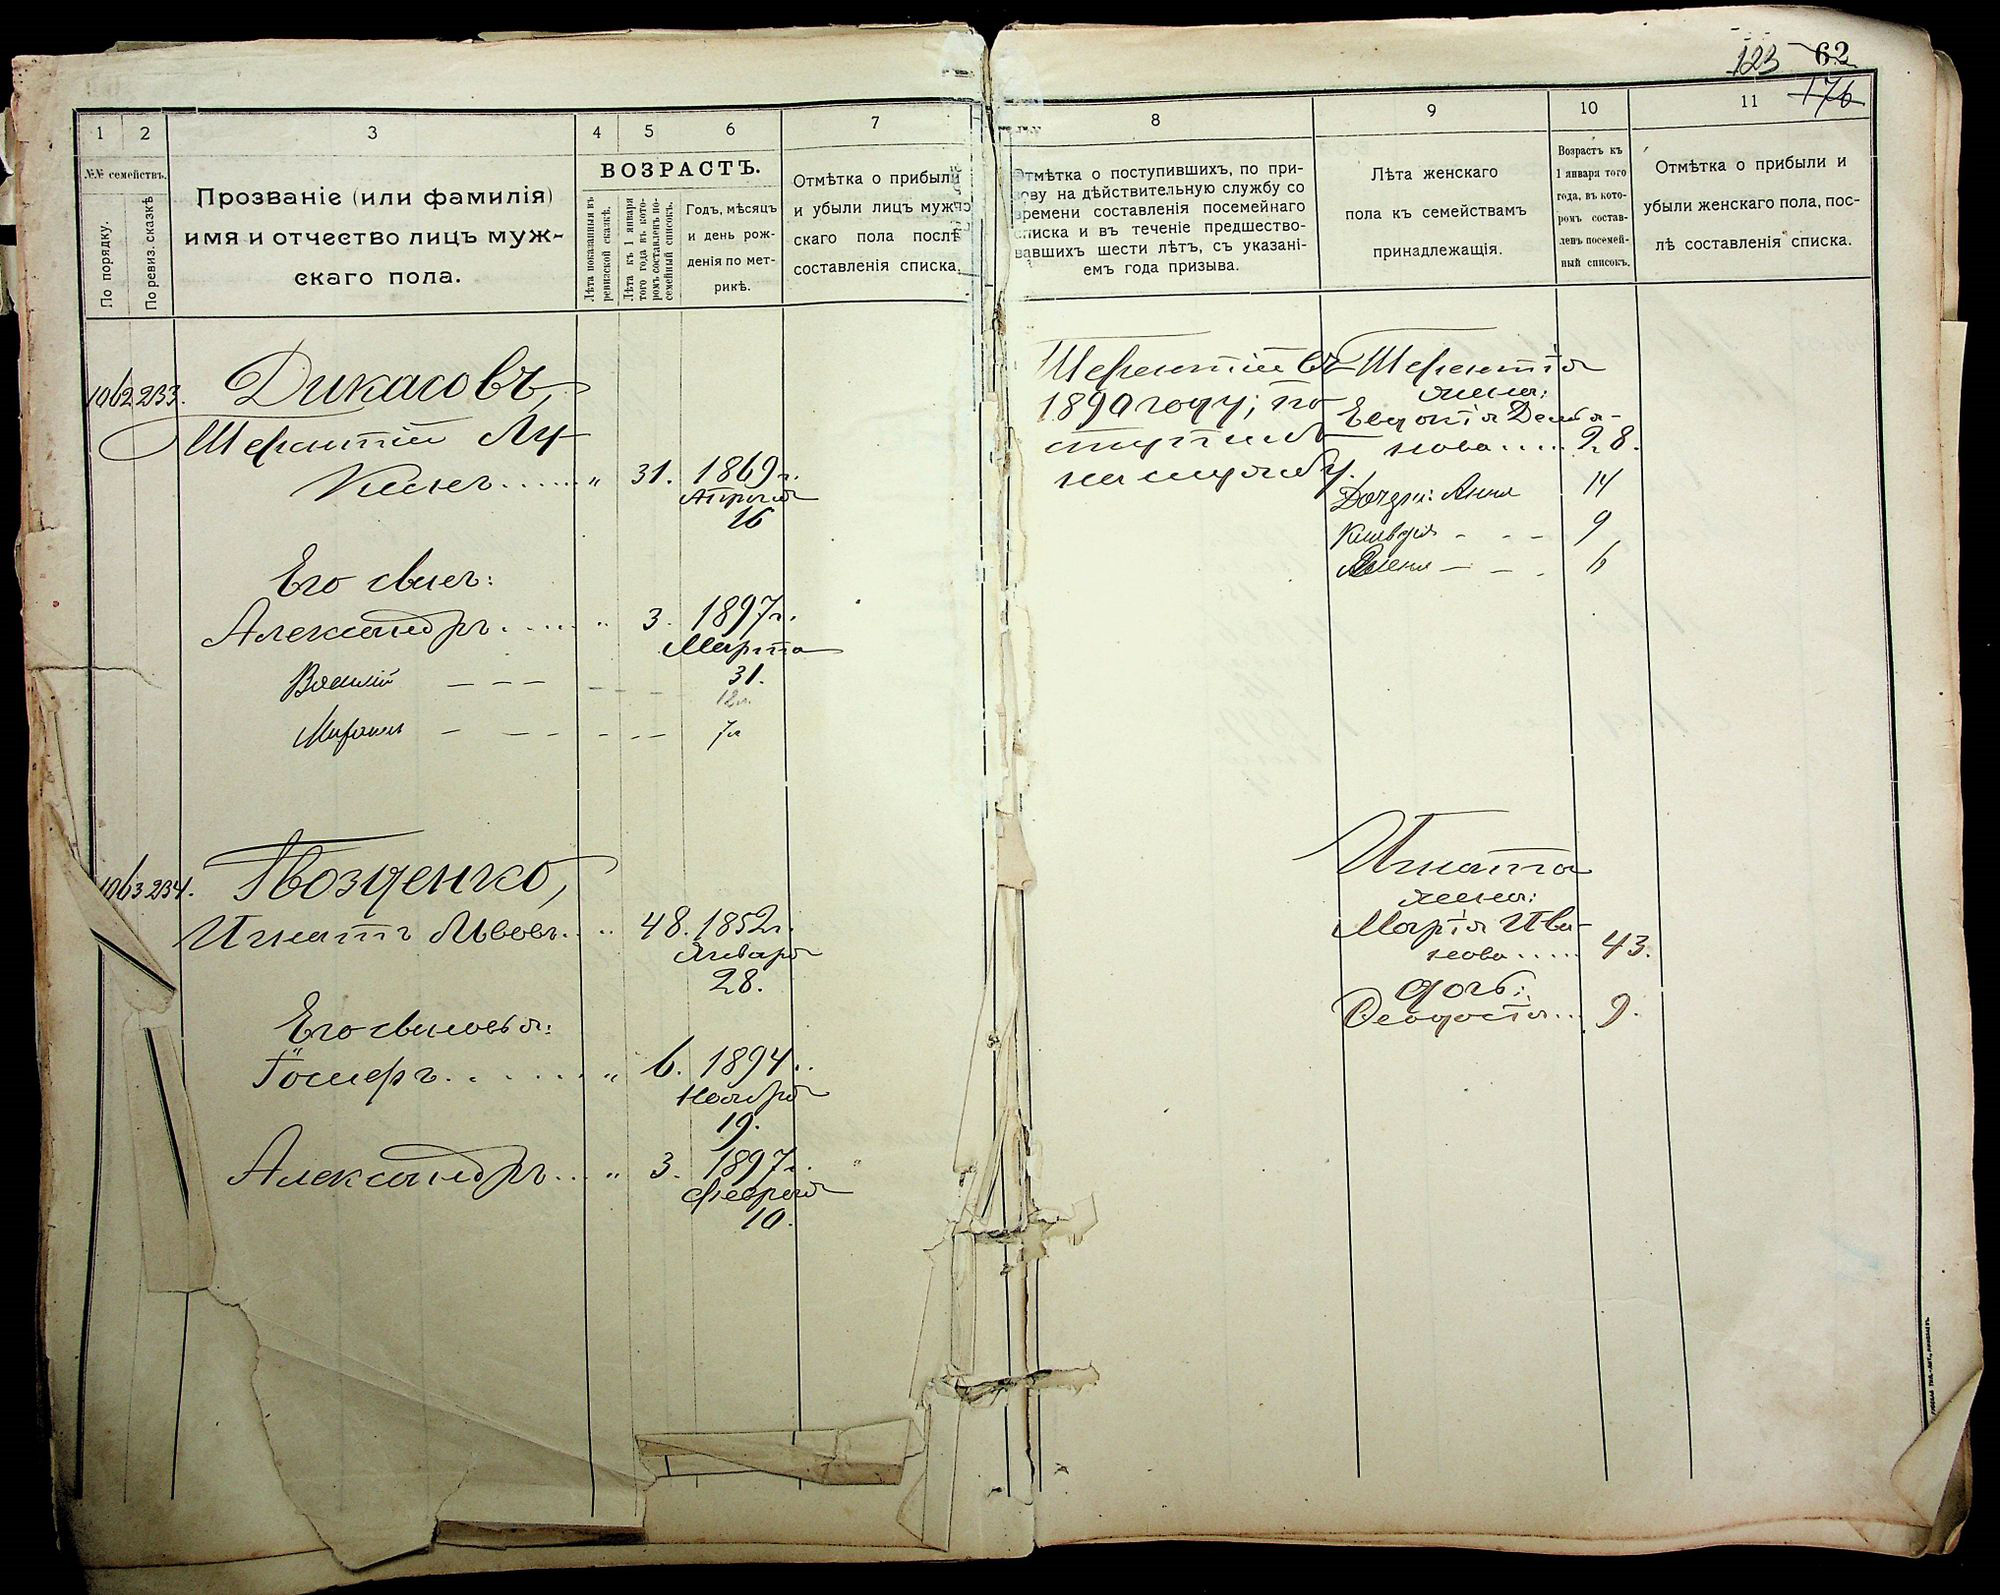 123 62
176
1
2
3
4
5
6
7
8
9
10
11
№№ семействъ.
По порядку.
По ревиз. сказкѣ
Прозваніе (или фамилія)
имя и отчество лицъ муж-
скаго пола.
ВОЗРАСТЪ.
Лѣта показанныя въ
ревизской сказкѣ.
Лѣта къ 1 января
того года въ кото-
ромъ составленъ по-
семейный списокъ.
Годъ, мѣсяцъ
и день рож-
денія по мет-
рикѣ.
Отмѣтка о прибыли
и убыли лицъ муж-
скаго пола послѣ
составленія списка.
Отмѣтка о поступившихъ, по при-
зову на дѣйствительную службу со
времени составленія посемейнаго
списка и въ теченіе предшество-
вавшихъ шести лѣтъ, съ указані-
емъ года призыва.
Лѣта женскаго
пола къ семействамъ
принадлежащія.
Возрастъ къ
1 января того
года, въ кото-
ромъ состав-
ленъ посемей-
ный списокъ.
Отмѣтка о прибыли и
убыли женскаго пола, пос-
лѣ составленія списка.
1062 233. Дикасовъ,
Терентій Лу-
кинъ...... „ 31. 1869 г.
Апрѣля
16
Его сынъ:
Александръ..... „ 3. 1897 г.
Марта
31.
Василій - - - - - - 12 л.
Миронъ - - - - - - 7 л
Терентій въ
1890 году, по-
ступилъ
на службу.
Терентія
жена:
Евдокія Демья-
нова..... 28.
Дочери: Анна 14
Клавдія - - - 9
Елена - - - 6
1063 234. Гвозденко,
Игнатъ Львовъ. „ 48. 1852 г.
Января
28.
Его сыновья:
Іосифъ....... „ 6. 1894..
Ноября
19.
Александръ... „ 3. 1897 г.
Февраля
10.
Игната
жена:
Марія Ива-
нова..... 43.
дочь:
Ѳеодосія... 9.